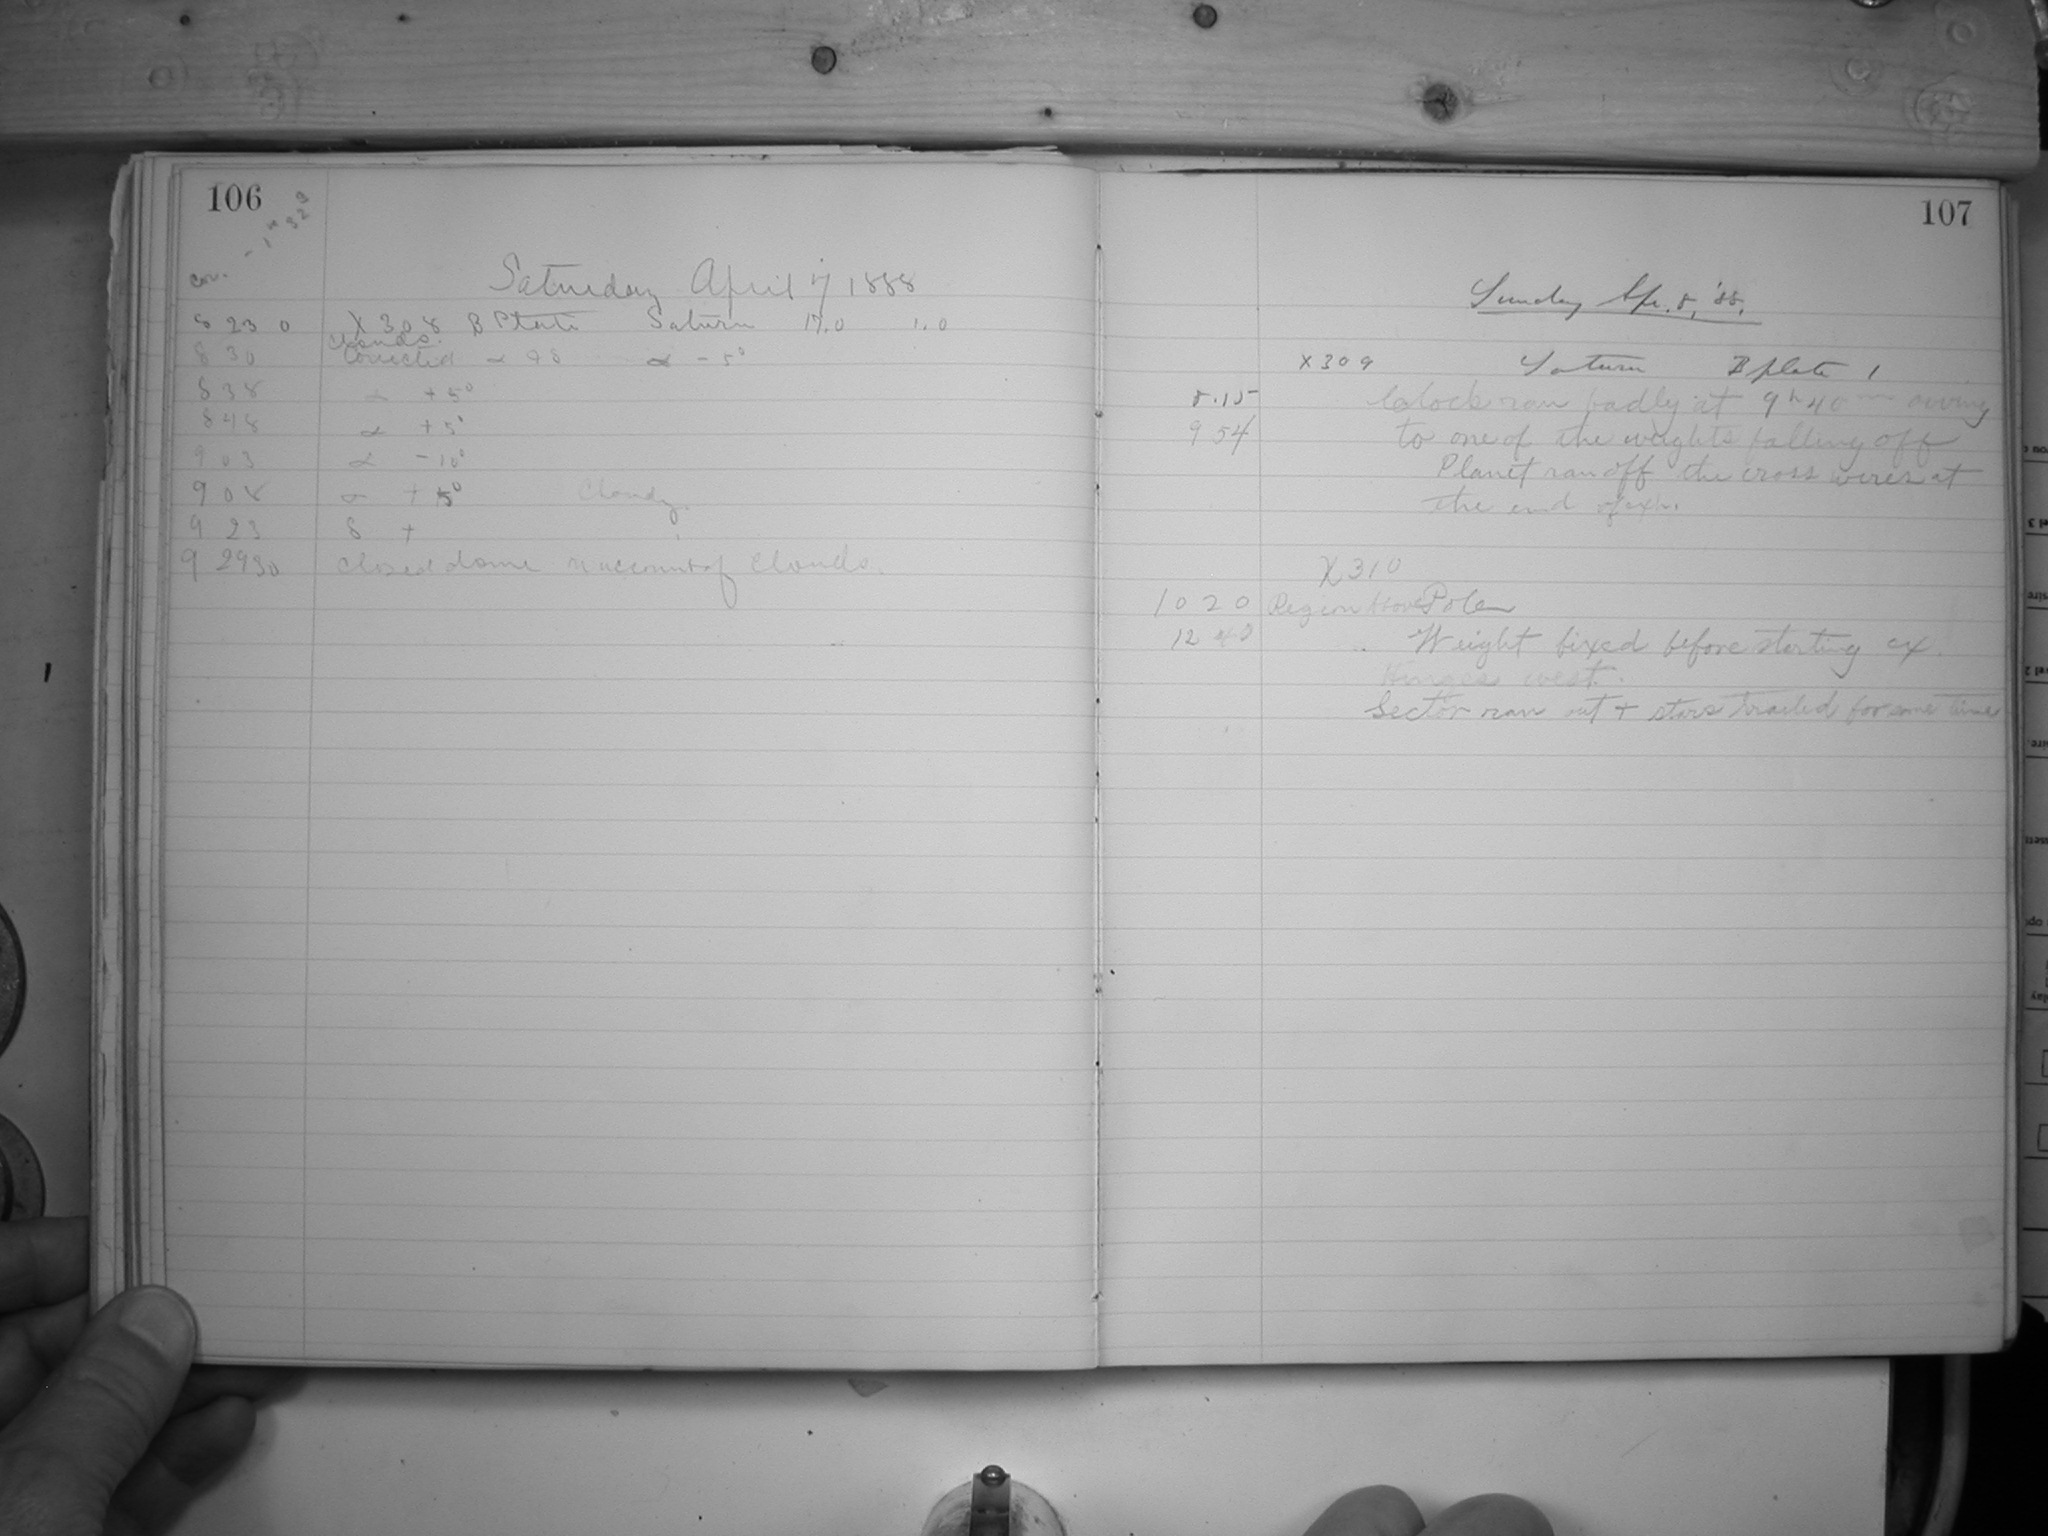 106
Cor. - 1
Saturday April 7 1888
8 23 0 X 308 B Plate Saturn 17.0 1.0
Clouds.
8 30 Corrected α 98 α - 5°
8 38 α + 5°
8 48 α + 5°
9 03 α - 10°
9 08 α + 5° Cloudy.
9 23 δ +
9 29 30 Closed dome on account of Clouds.
107
Sunday Apr. 8, '88.
X 309 Saturn B plate 1
8.15 Clock ran badly at 9 h 40 m owing
9 54 to one of the weights falling off
Planet ran off the cross wires at
the end of exp.
X 310
10 20 Region Pole
12 40 Weight fixed before starting ex.
Hinges west.
Sector ran out + stars trailed for some time